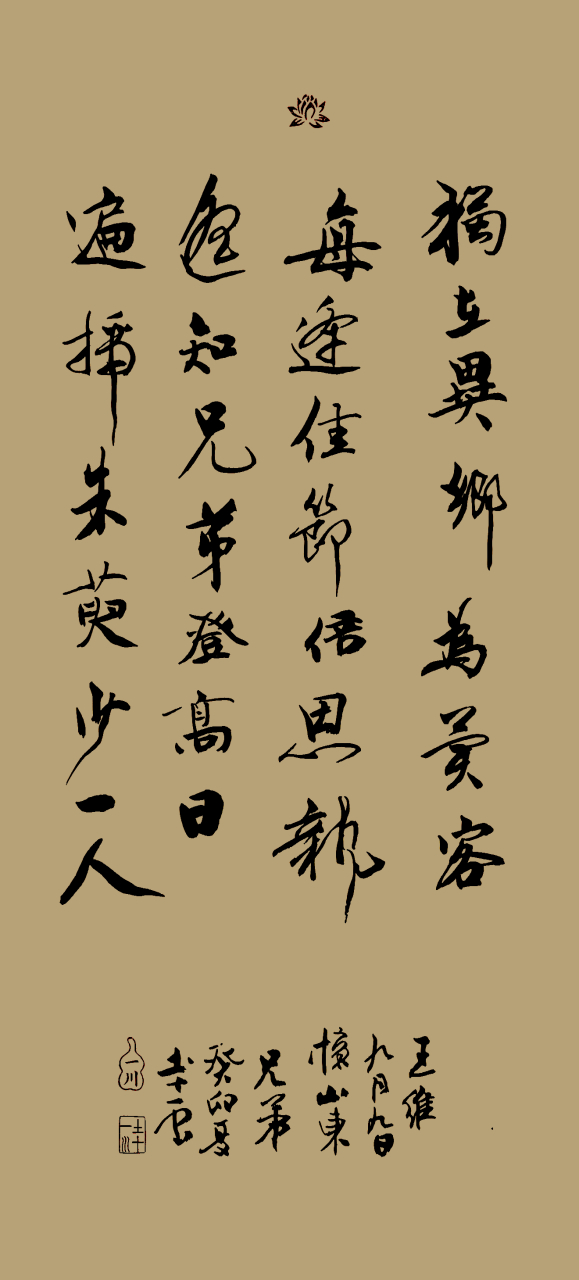 獨在異鄉為異客
每逢佳節倍思親
遙知兄弟登高日
遍插朱萸少一人
王維
九月九日
憶山東
兄弟
癸卯夏
一川